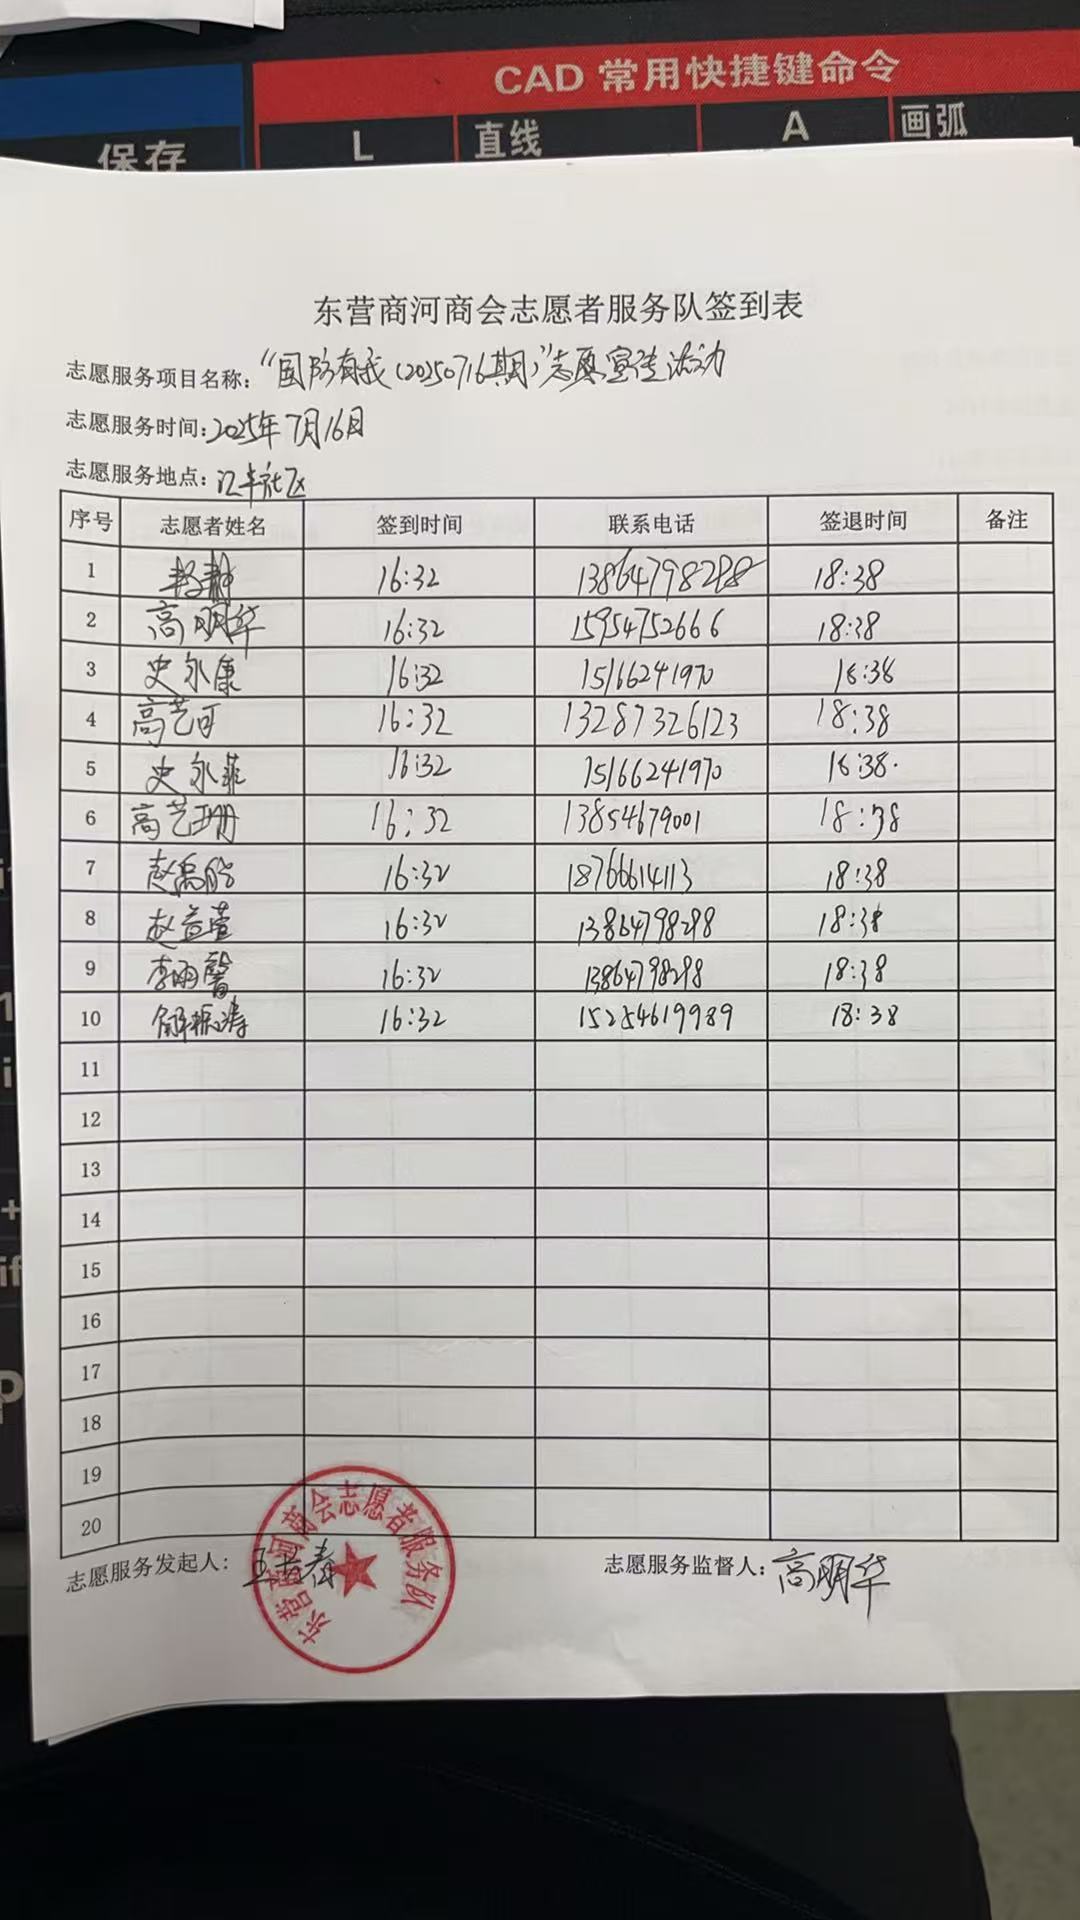 CAD 常用快捷键命令
保存 L 直线 A 画弧
东营商河商会志愿者服务队签到表
志愿服务项目名称："国防有我（20250716期）"志愿宣传活动
志愿服务时间：2025年7月16日
志愿服务地点：汇丰社区
序号 志愿者姓名 签到时间 联系电话 签退时间 备注
1 16:32 13864798298 18:38
2 高明华 16:32 15954752666 18:38
3 史尔康 16:32 15166241970 18:38
4 高艺可 16:32 13287326123 18:38
5 史尔菲 16:32 15166241970 18:38.
6 高艺珊 16:32 13854679001 18:38
7 赵禹皓 16:32 18766614113 18:38
8 赵益萱 16:32 13864798298 18:38
9 李雨馨 16:32 13864798298 18:38
10 解振涛 16:32 15254619989 18:38
11
12
13
14
15
16
17
18
19
20
志愿服务发起人： 志愿服务监督人：高明华
东营商河商会志愿者服务队